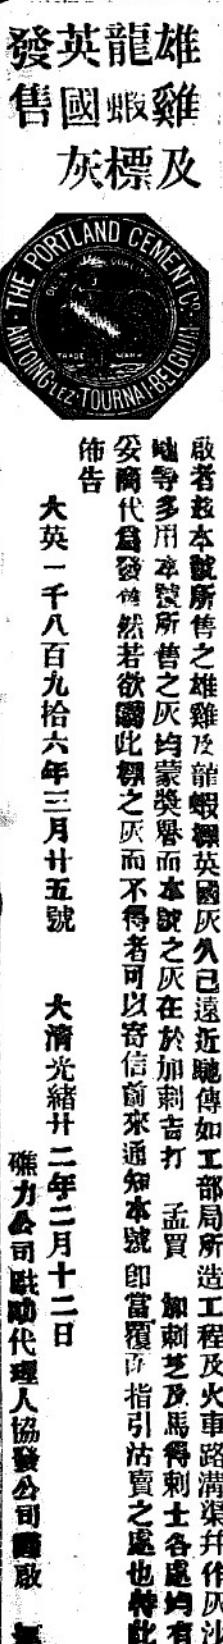 雄雞及
龍蝦標
英國灰
發售
THE PORTLAND CEMENT Co
ANTOING-LEZ-TOURNAI-BELGIUM
TRADE MARK
啟者茲本號所售之雄雞及龍蝦標英國灰久已遠近馳傳如工部局所造工程及火車路溝渠井作灰沙
地等多用本號所售之灰均蒙獎譽而本號之灰在於加剌吉打 孟買 加剌芝及馬得剌士各處均有
妥商代為發售然若欲購此標之灰而不得者可以寄信前來通知本號即當覆函指引沽賣之處也特此
佈告
大英一千八百九拾六年三月廿五號 大清光緒廿二年二月十二日
礁力公司駐 代理人協發公司 啟